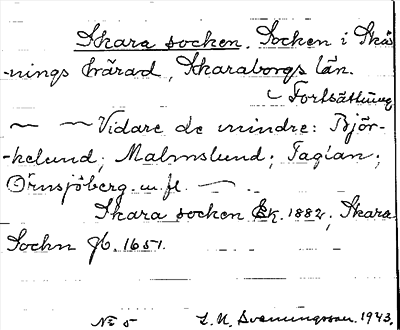 Skara socken. Socken i Skå-
nings härad, Skaraborgs län.
(Fortsättning
— — Vidare de mindre: Björ-
kelund; Malmslund; Tagían;
Örnsjöberg m. fl. —.
Skara socken Ek. 1882; Skara
Sochn Jb. 1651.
No 5 L. N. Svenungsson 1943.